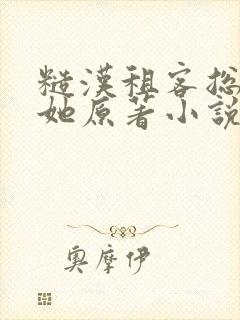 糙漢租客總
她原著小說
奧摩伊